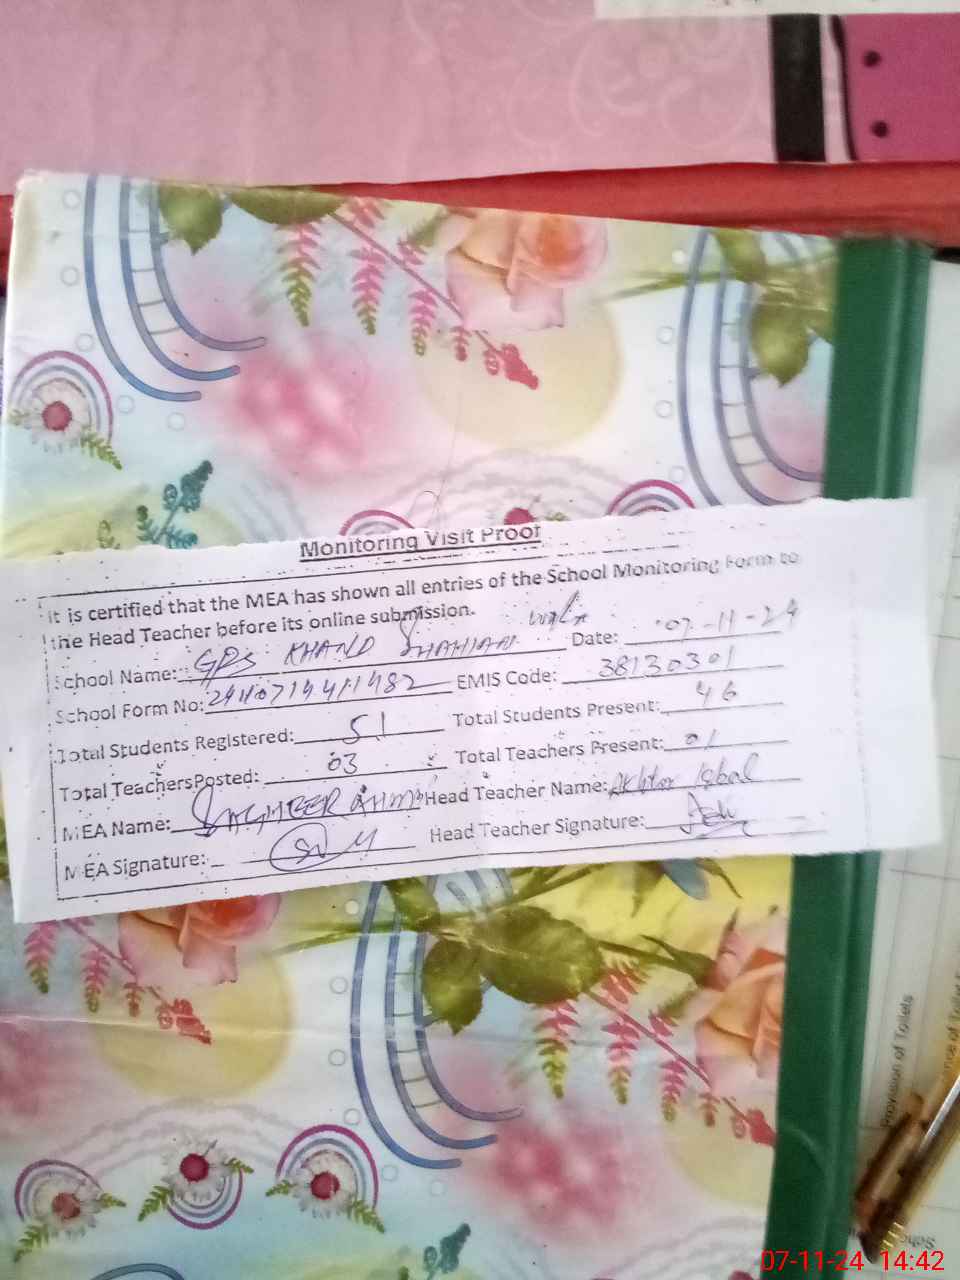 Monitoring Visit Proof
It is certified that the MEA has shown all entries of the School Monitoring Form to
the Head Teacher before its online submission.
School Name: GPS KHAND SHAHIAN wala Date: 07-11-24
School Form No: EMIS Code: 38130301
Total Students Registered: 51 Total Students Present: 46
Total Teachers Posted: 03 Total Teachers Present: 01
MEA Name: SAGHEER AHMAD Head Teacher Name: Akhtar Iqbal
MEA Signature: Head Teacher Signature:
Provision of Toilets
07-11-24 14:42